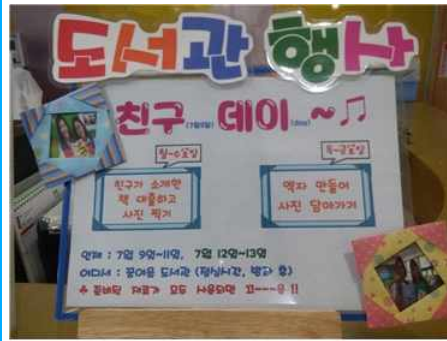 도서관 행사
친구 데이~
월~수요일
목~금요일
친구가 소개한
책 대출하고
사진 찍기
액자 만들어
사진 담아가기
언제 : 7월 9일~11일, 7월 12일~13일
어디서 : 꿈여울 도서관 (점심시간, 방과 후)
준비된 재료가 모두 사용되면 끄---읕 !!